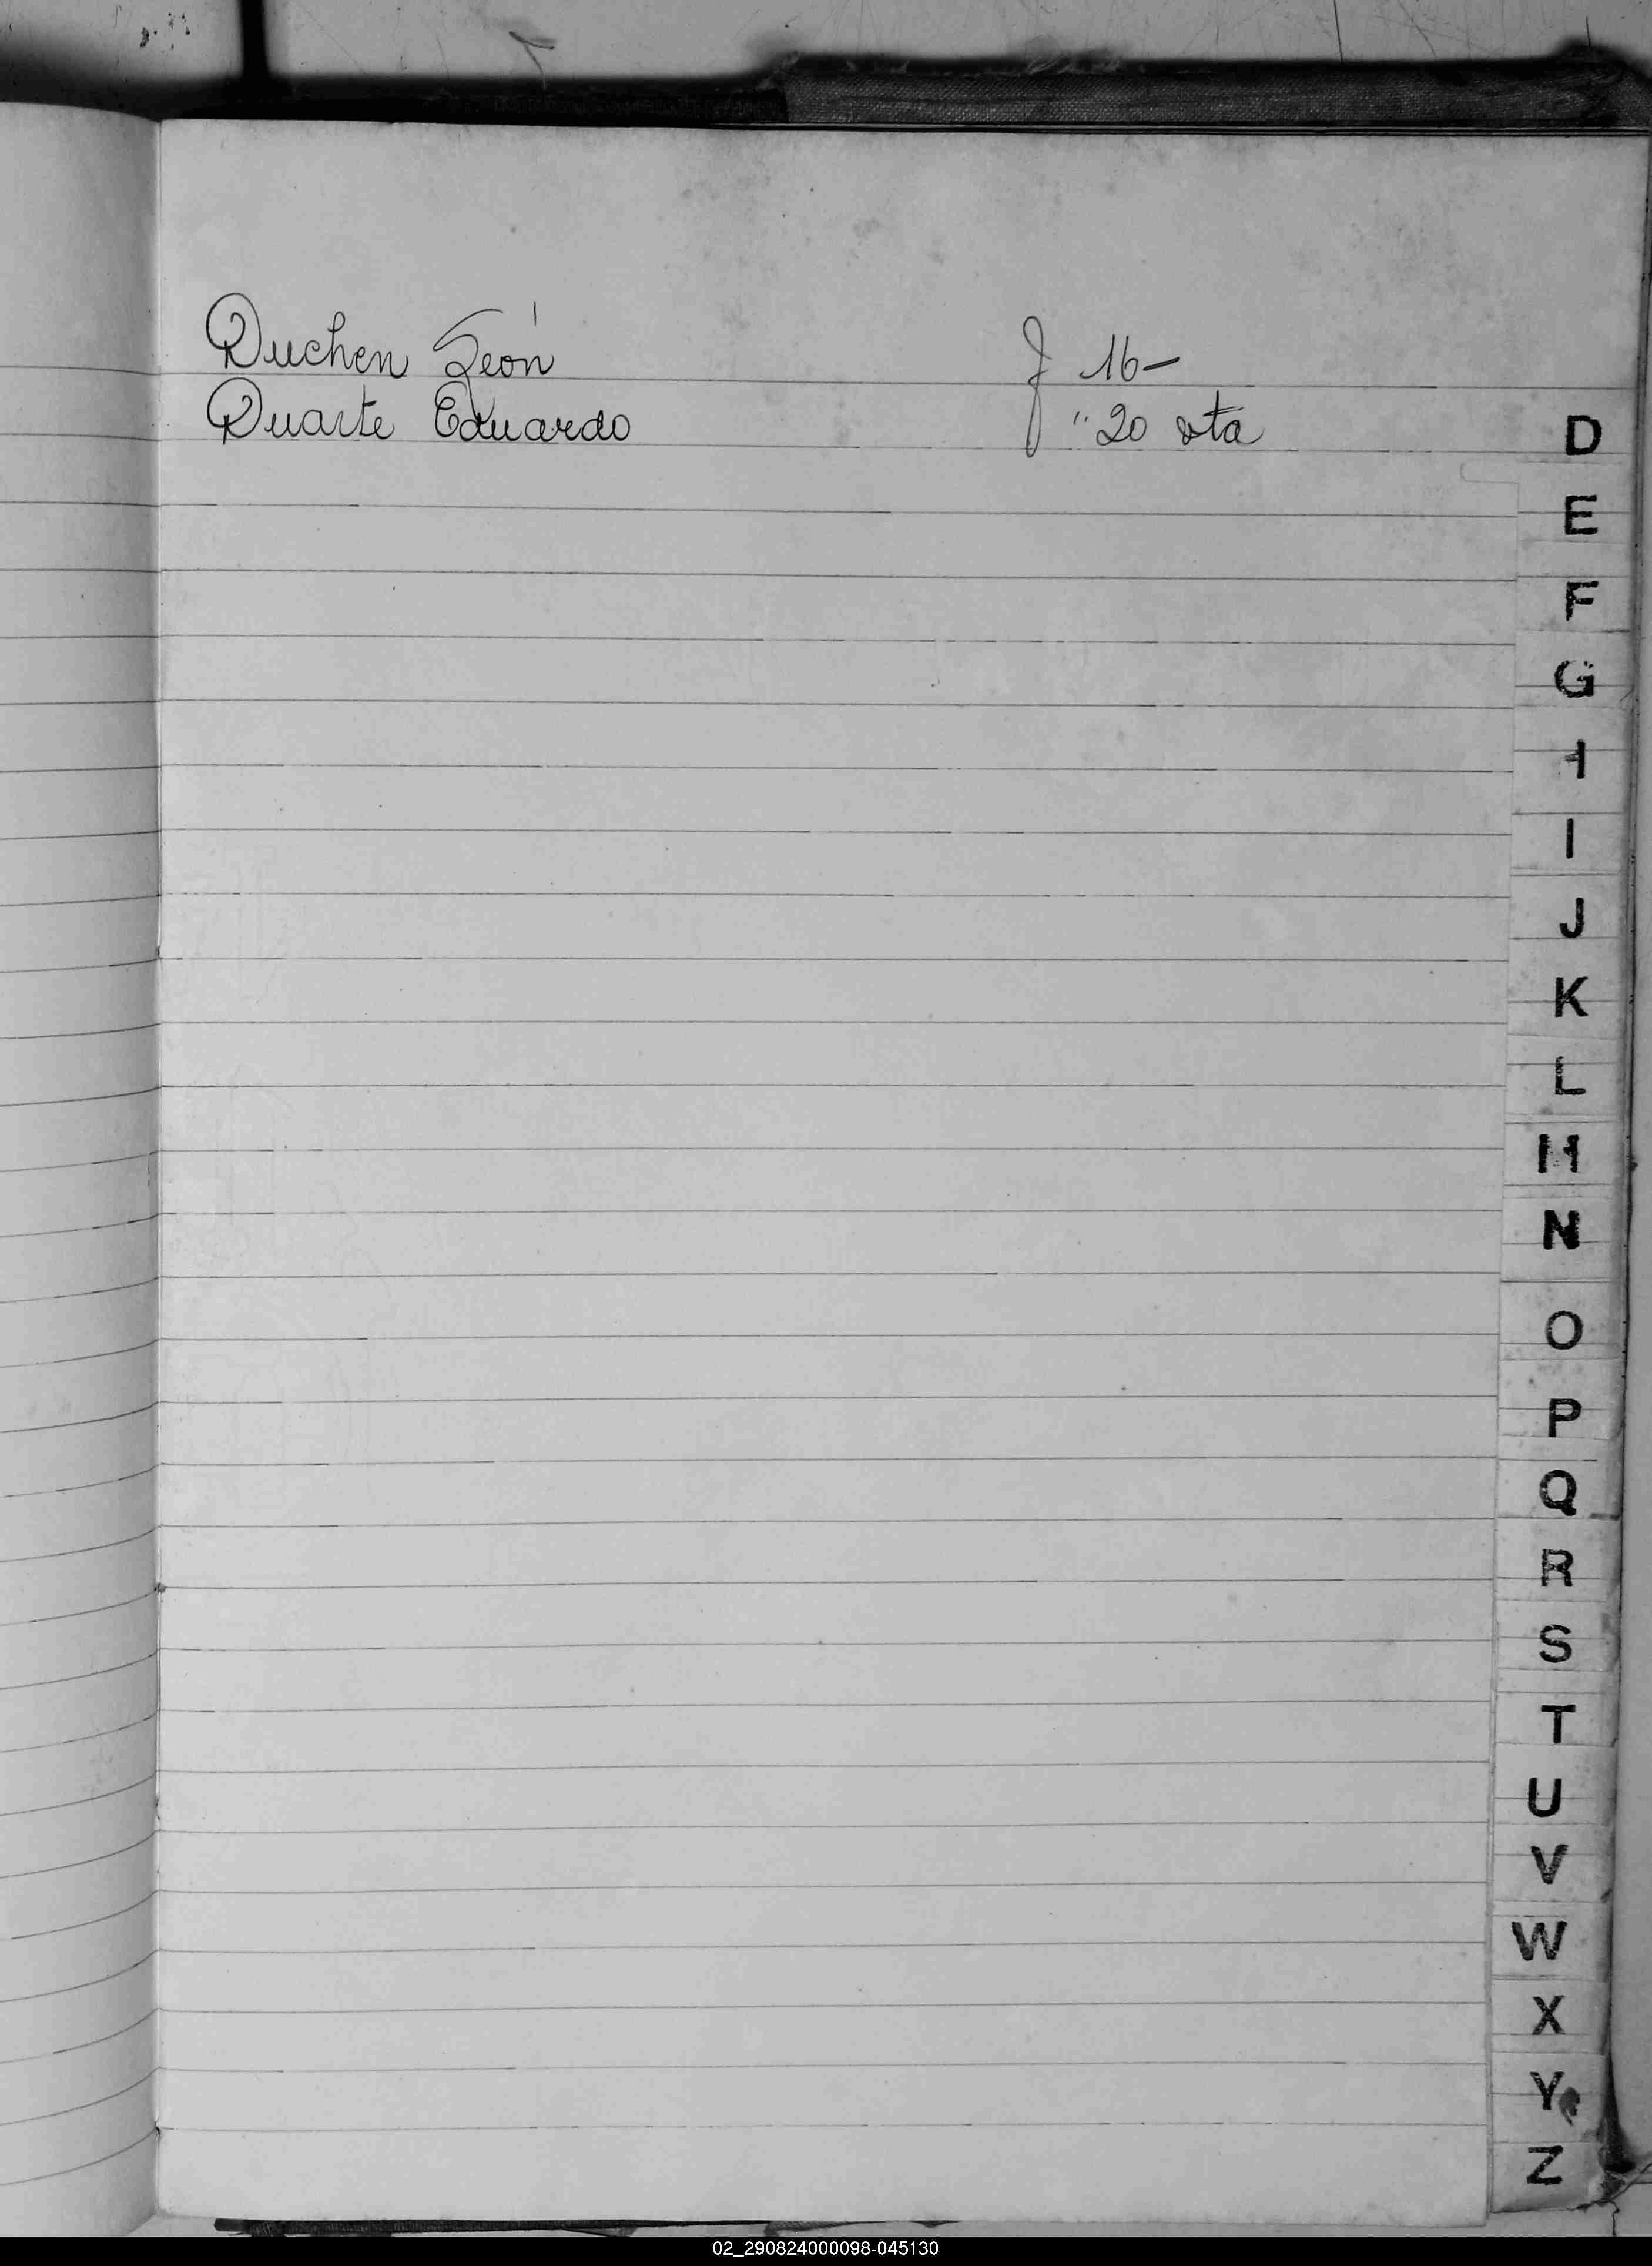 Duchen León f 16-
Duarte Eduardo " 20 vta
D
E
F
G
H
I
J
K
L
M
N
O
P
Q
R
S
T
U
V
W
X
Y
Z
02_290824000098-045130